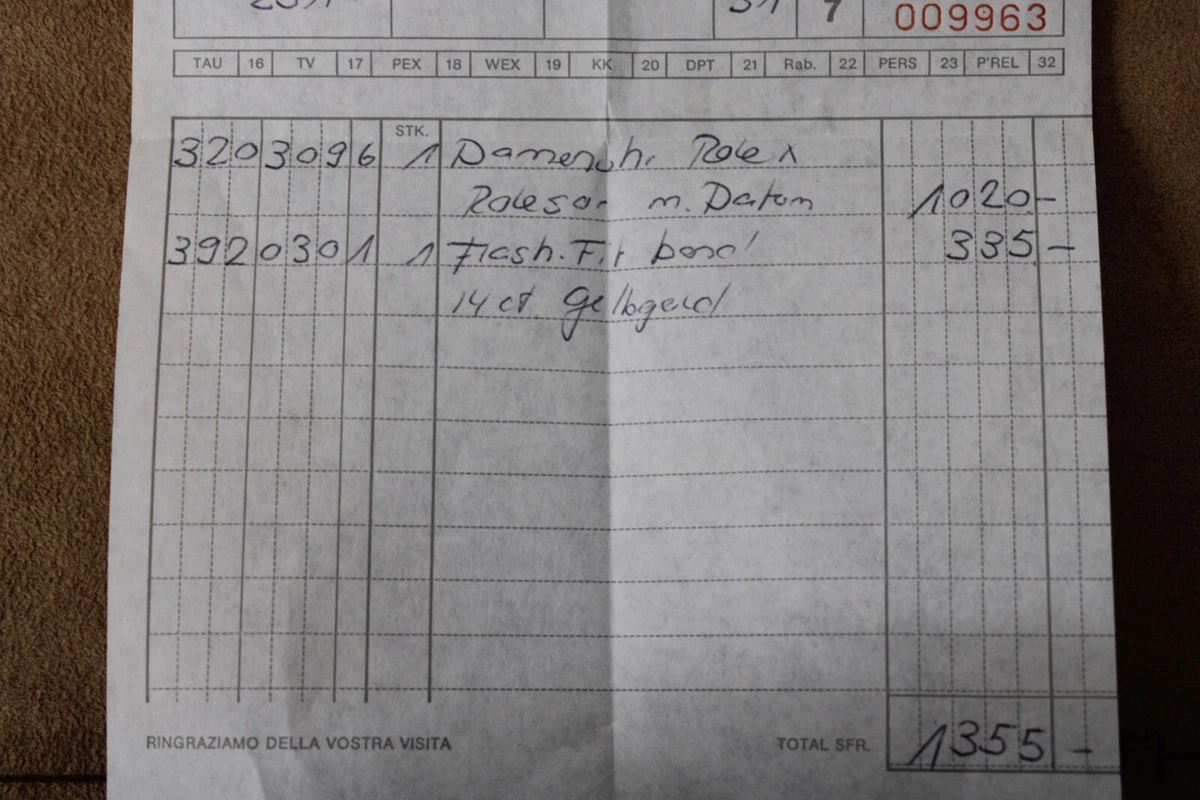 7 009963
TAU 16 TV 17 PEX 18 WEX 19 KK 20 DPT 21 Rab. 22 PERS 23 P'REL 32
STK.
3203096 1 Damenuh. Rolex
Rolesor m. Datum 1020-
3920301 1 Flash. Fit band 335-
14 ct. Gelbgold
RINGRAZIAMO DELLA VOSTRA VISITA TOTAL SFR. 1355-